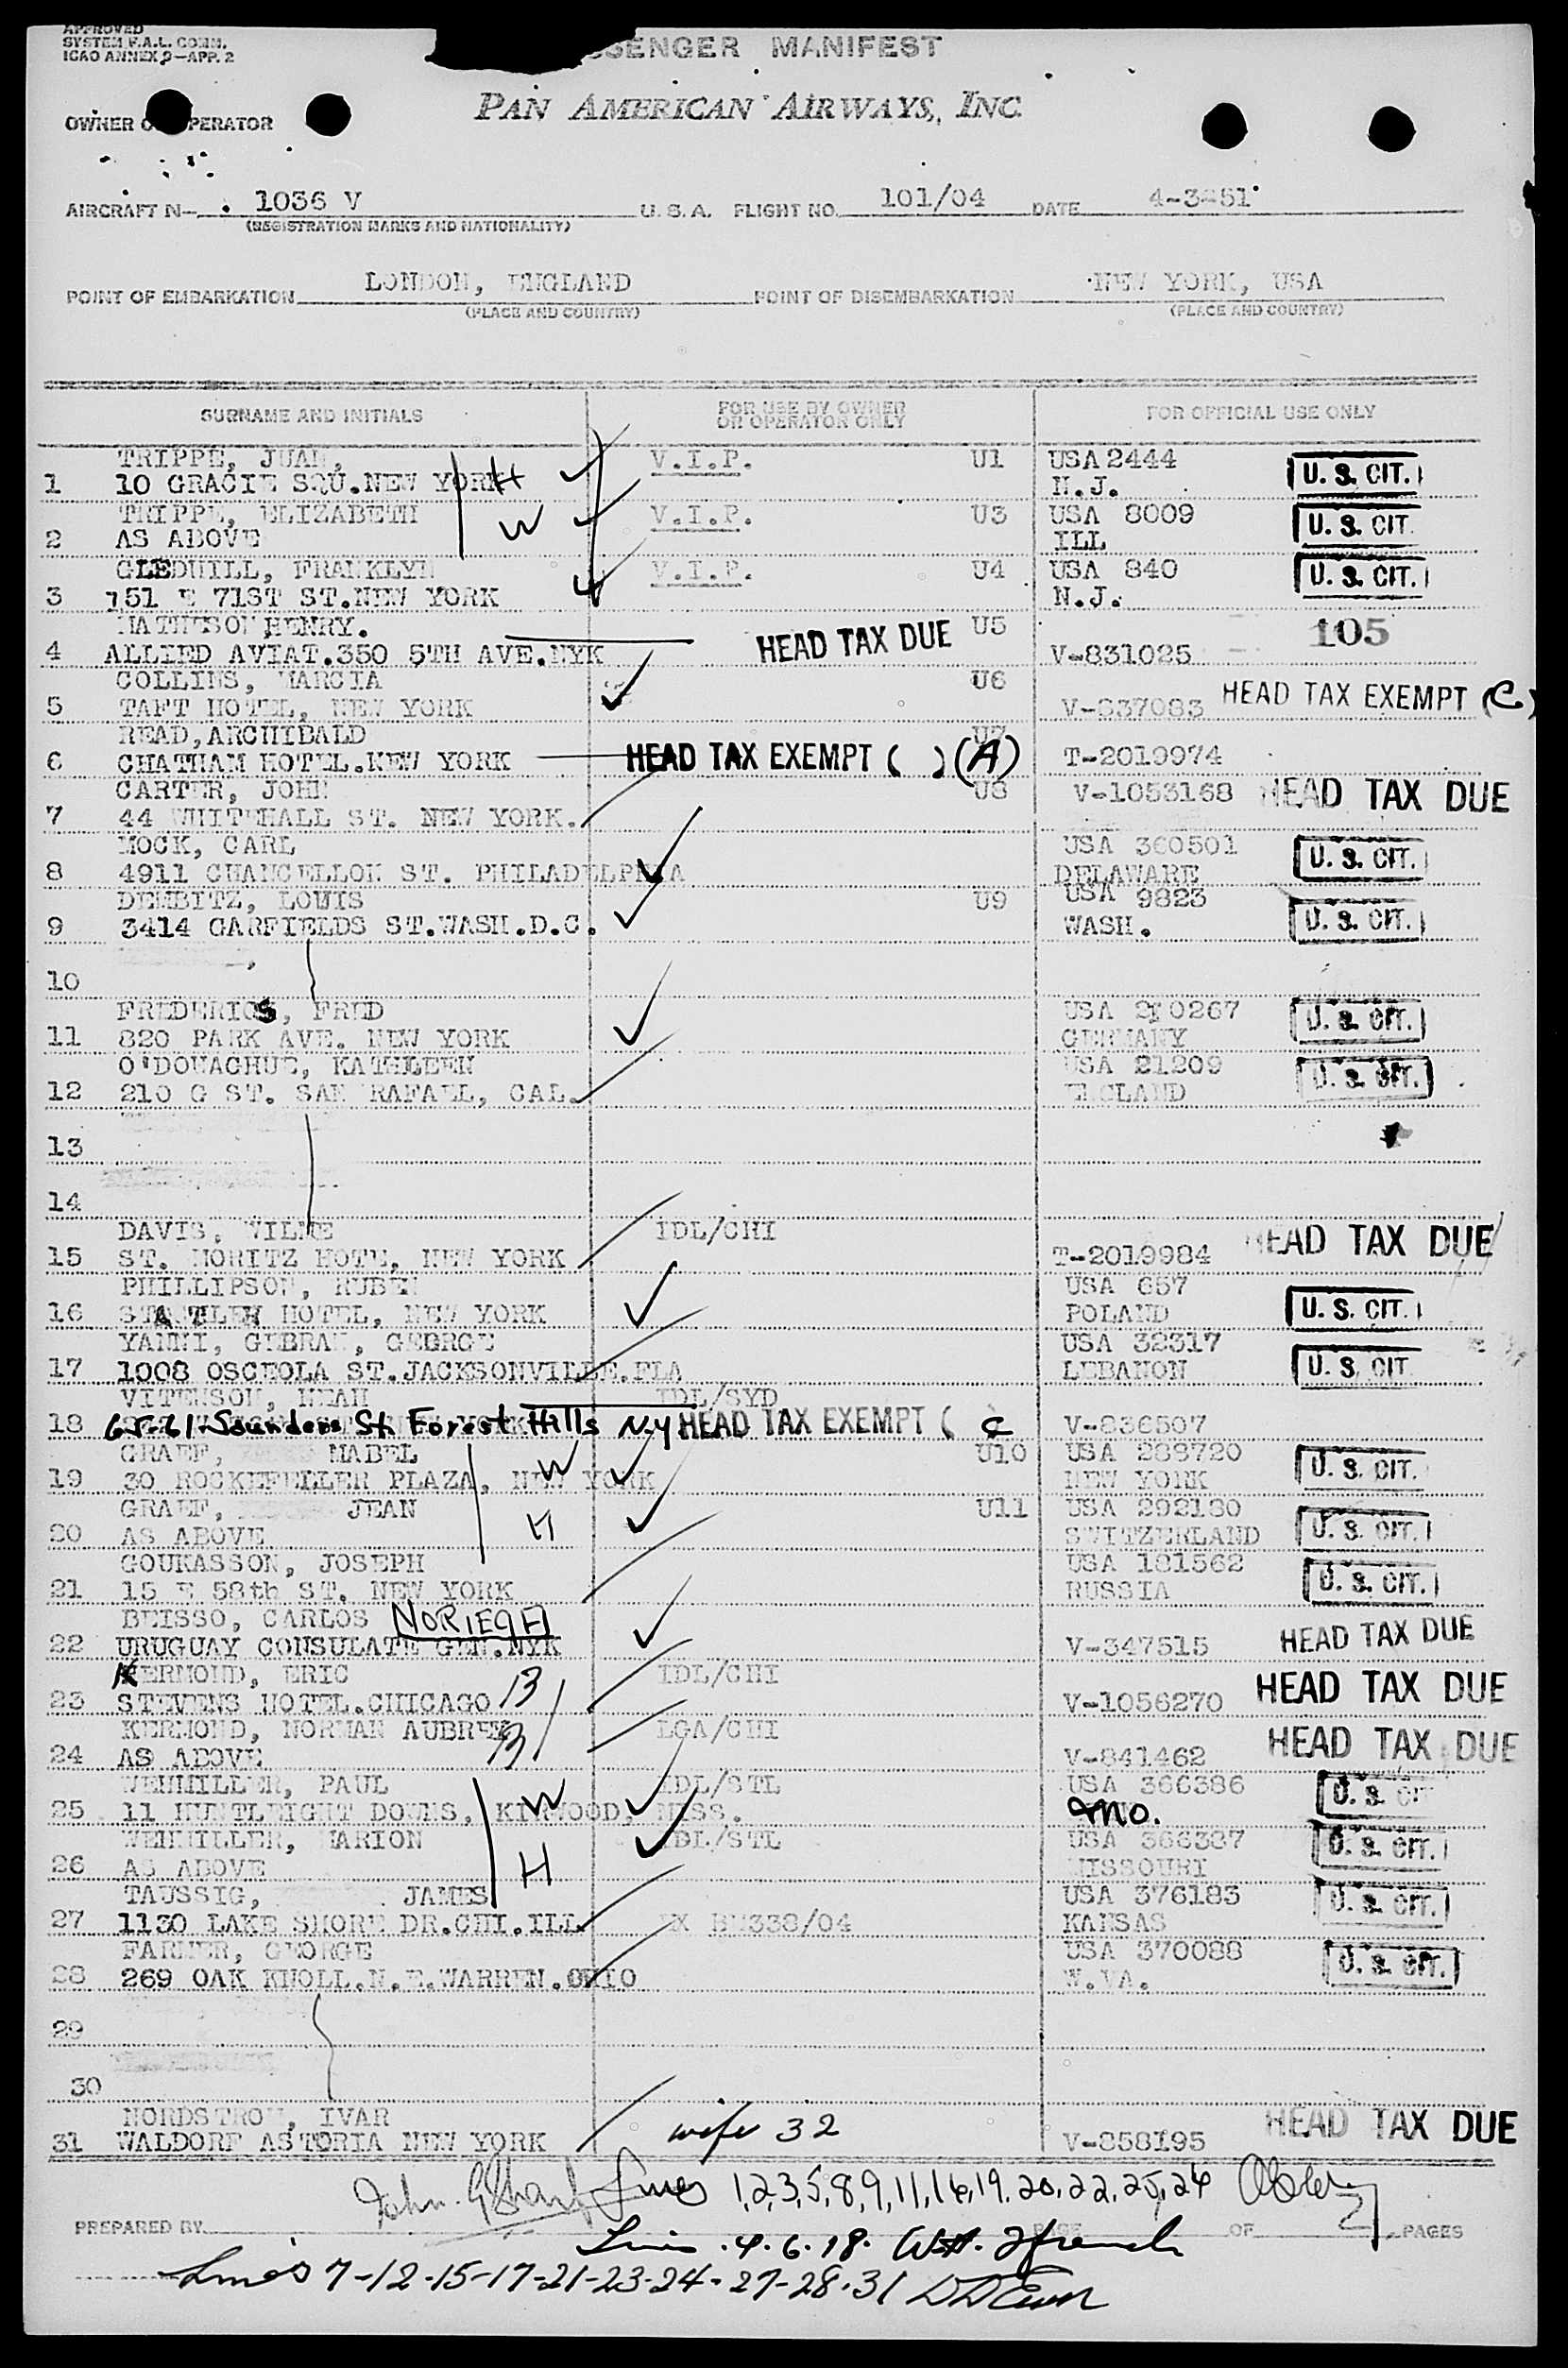 APPROVED
SYSTEM F.A.L. COMM.
ICAO ANNEX 9—APP. 2
SENGER MANIFEST
PAN AMERICAN AIRWAYS, INC.
OWNER O PERATOR
AIRCRAFT N— 1036 V U. S. A. FLIGHT NO. 101/04 DATE 4-3-51
(REGISTRATION MARKS AND NATIONALITY)
POINT OF EMBARKATION LONDON, ENGLAND POINT OF DISEMBARKATION NEW YORK, USA
(PLACE AND COUNTRY) (PLACE AND COUNTRY)
SURNAME AND INITIALS FOR USE BY OWNER OR OPERATOR ONLY FOR OFFICIAL USE ONLY
TRIPPE, JUAN, V.I.P. U1 USA 2444 U. S. CIT.
1 10 GRACIE SQU.NEW YORK H N.J.
TRIPPE, ELIZABETH V.I.P. U3 USA 8009 U. S. CIT.
2 AS ABOVE W ILL
GLEDHILL, FRANKLYN V.I.P. U4 USA 840 U. S. CIT.
3 151 E 71ST ST.NEW YORK N.J.
MATHESON HENRY. HEAD TAX DUE U5 105
4 ALLIED AVIAT.350 5TH AVE.NYK V-831025
COLLINS, MARCIA U6
5 TAFT HOTEL, NEW YORK V-837083 HEAD TAX EXEMPT (C)
READ,ARCHIBALD U7
6 CHATHAM HOTEL.NEW YORK HEAD TAX EXEMPT ( ) (A) T-2019974
CARTER, JOHN U8 V-1053168 HEAD TAX DUE
7 44 WHITEHALL ST. NEW YORK.
MOCK, CARL USA 360501 U. S. CIT.
8 4911 CHANCELLOR ST. PHILADELPHIA DELAWARE
DEMBITZ, LOUIS U9 USA 9823
9 3414 GARFIELDS ST.WASH.D.C. WASH. U. S. CIT.
10
FREDERICS, FRED USA 210267 U. S. CIT.
11 820 PARK AVE. NEW YORK GERMANY
O'DONAGHUE, KATHLEEN USA 21209 U. S. CIT.
12 210 G ST. SAN RAFAEL, CAL. ENGLAND
13
14
DAVIS, WILME IDL/CHI HEAD TAX DUE
15 ST. MORITZ HOTE, NEW YORK T-2019984
PHILLIPSON, RUBEN USA 657
16 STATLER HOTEL, NEW YORK POLAND U. S. CIT.
YANNI, GEBRAN, GEORGE USA 32317
17 1008 OSCEOLA ST.JACKSONVILLE.FLA LEBANON U. S. CIT
VITENSON, NEAH IDL/SYD
18 65-61 Saunders St Forest Hills N.Y HEAD TAX EXEMPT ( C V-836507
GRAEF, MABEL U10 USA 288720 U. S. CIT.
19 30 ROCKEFELLER PLAZA, NEW YORK W NEW YORK
GRAEF, JEAN U11 USA 292180
20 AS ABOVE H SWITZERLAND U. S. CIT.
GOUKASSON, JOSEPH USA 181562
21 15 E 58th ST. NEW YORK RUSSIA U. S. CIT.
BEISSO, CARLOS NORIEGA
22 URUGUAY CONSULATE GEN.NYK V-347515 HEAD TAX DUE
KERMOND, ERIC IDL/CHI
23 STEVENS HOTEL.CHICAGO B V-1056270 HEAD TAX DUE
KERMOND, NORMAN AUBREY LGA/CHI HEAD TAX DUE
24 AS ABOVE B V-841462
WEHMILLER, PAUL IDL/STL USA 366386 U. S. CIT
25 11 HUNTLEIGHT DOWNS, KIRWOOD, MISS. W MO.
WEHMILLER, MARION IDL/STL USA 366387 U. S. CIT.
26 AS ABOVE H MISSOURI
TAUSSIG, JAMES USA 376183 U. S. CIT.
27 1130 LAKE SHORE DR.CHI.ILL EX BN338/04 KANSAS
FARMER, GEORGE USA 370088
28 269 OAK KNOLL.N.E.WARREN.OHIO W.VA. U. S. CIT.
29
30
NORDSTROM, IVAR wife 32 HEAD TAX DUE
31 WALDORF ASTORIA NEW YORK V-858195
John Lines 1,2,3,5,8,9,11,16,19,20,22,25,26
PREPARED BY PAGE OF 2 PAGES
Lines 4.6.18.
Lines 7-12-15-17-21-23-24-27-28-31